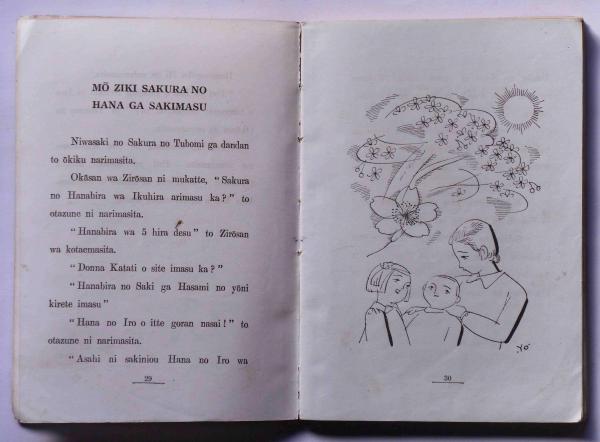 MŌ ZIKI SAKURA NO
HANA GA SAKIMASU
Niwasaki no Sakura no Tubomi ga dandan
to ōkiku narimasita.
Okāsan wa Zirōsan ni mukatte, "Sakura
no Hanabira wa Ikuhira arimasu ka?" to
otazune ni narimasita.
"Hanabira wa 5 hira desu" to Zirōsan
wa kotaemasita.
"Donna Katati o site imasu ka?"
"Hanabira no Saki ga Hasami no yōni
kirete imasu"
"Hana no Iro o itte goran nasai!" to
otazune ni narimasita.
"Asahi ni sakiniou Hana no Iro wa
29
Yo
30